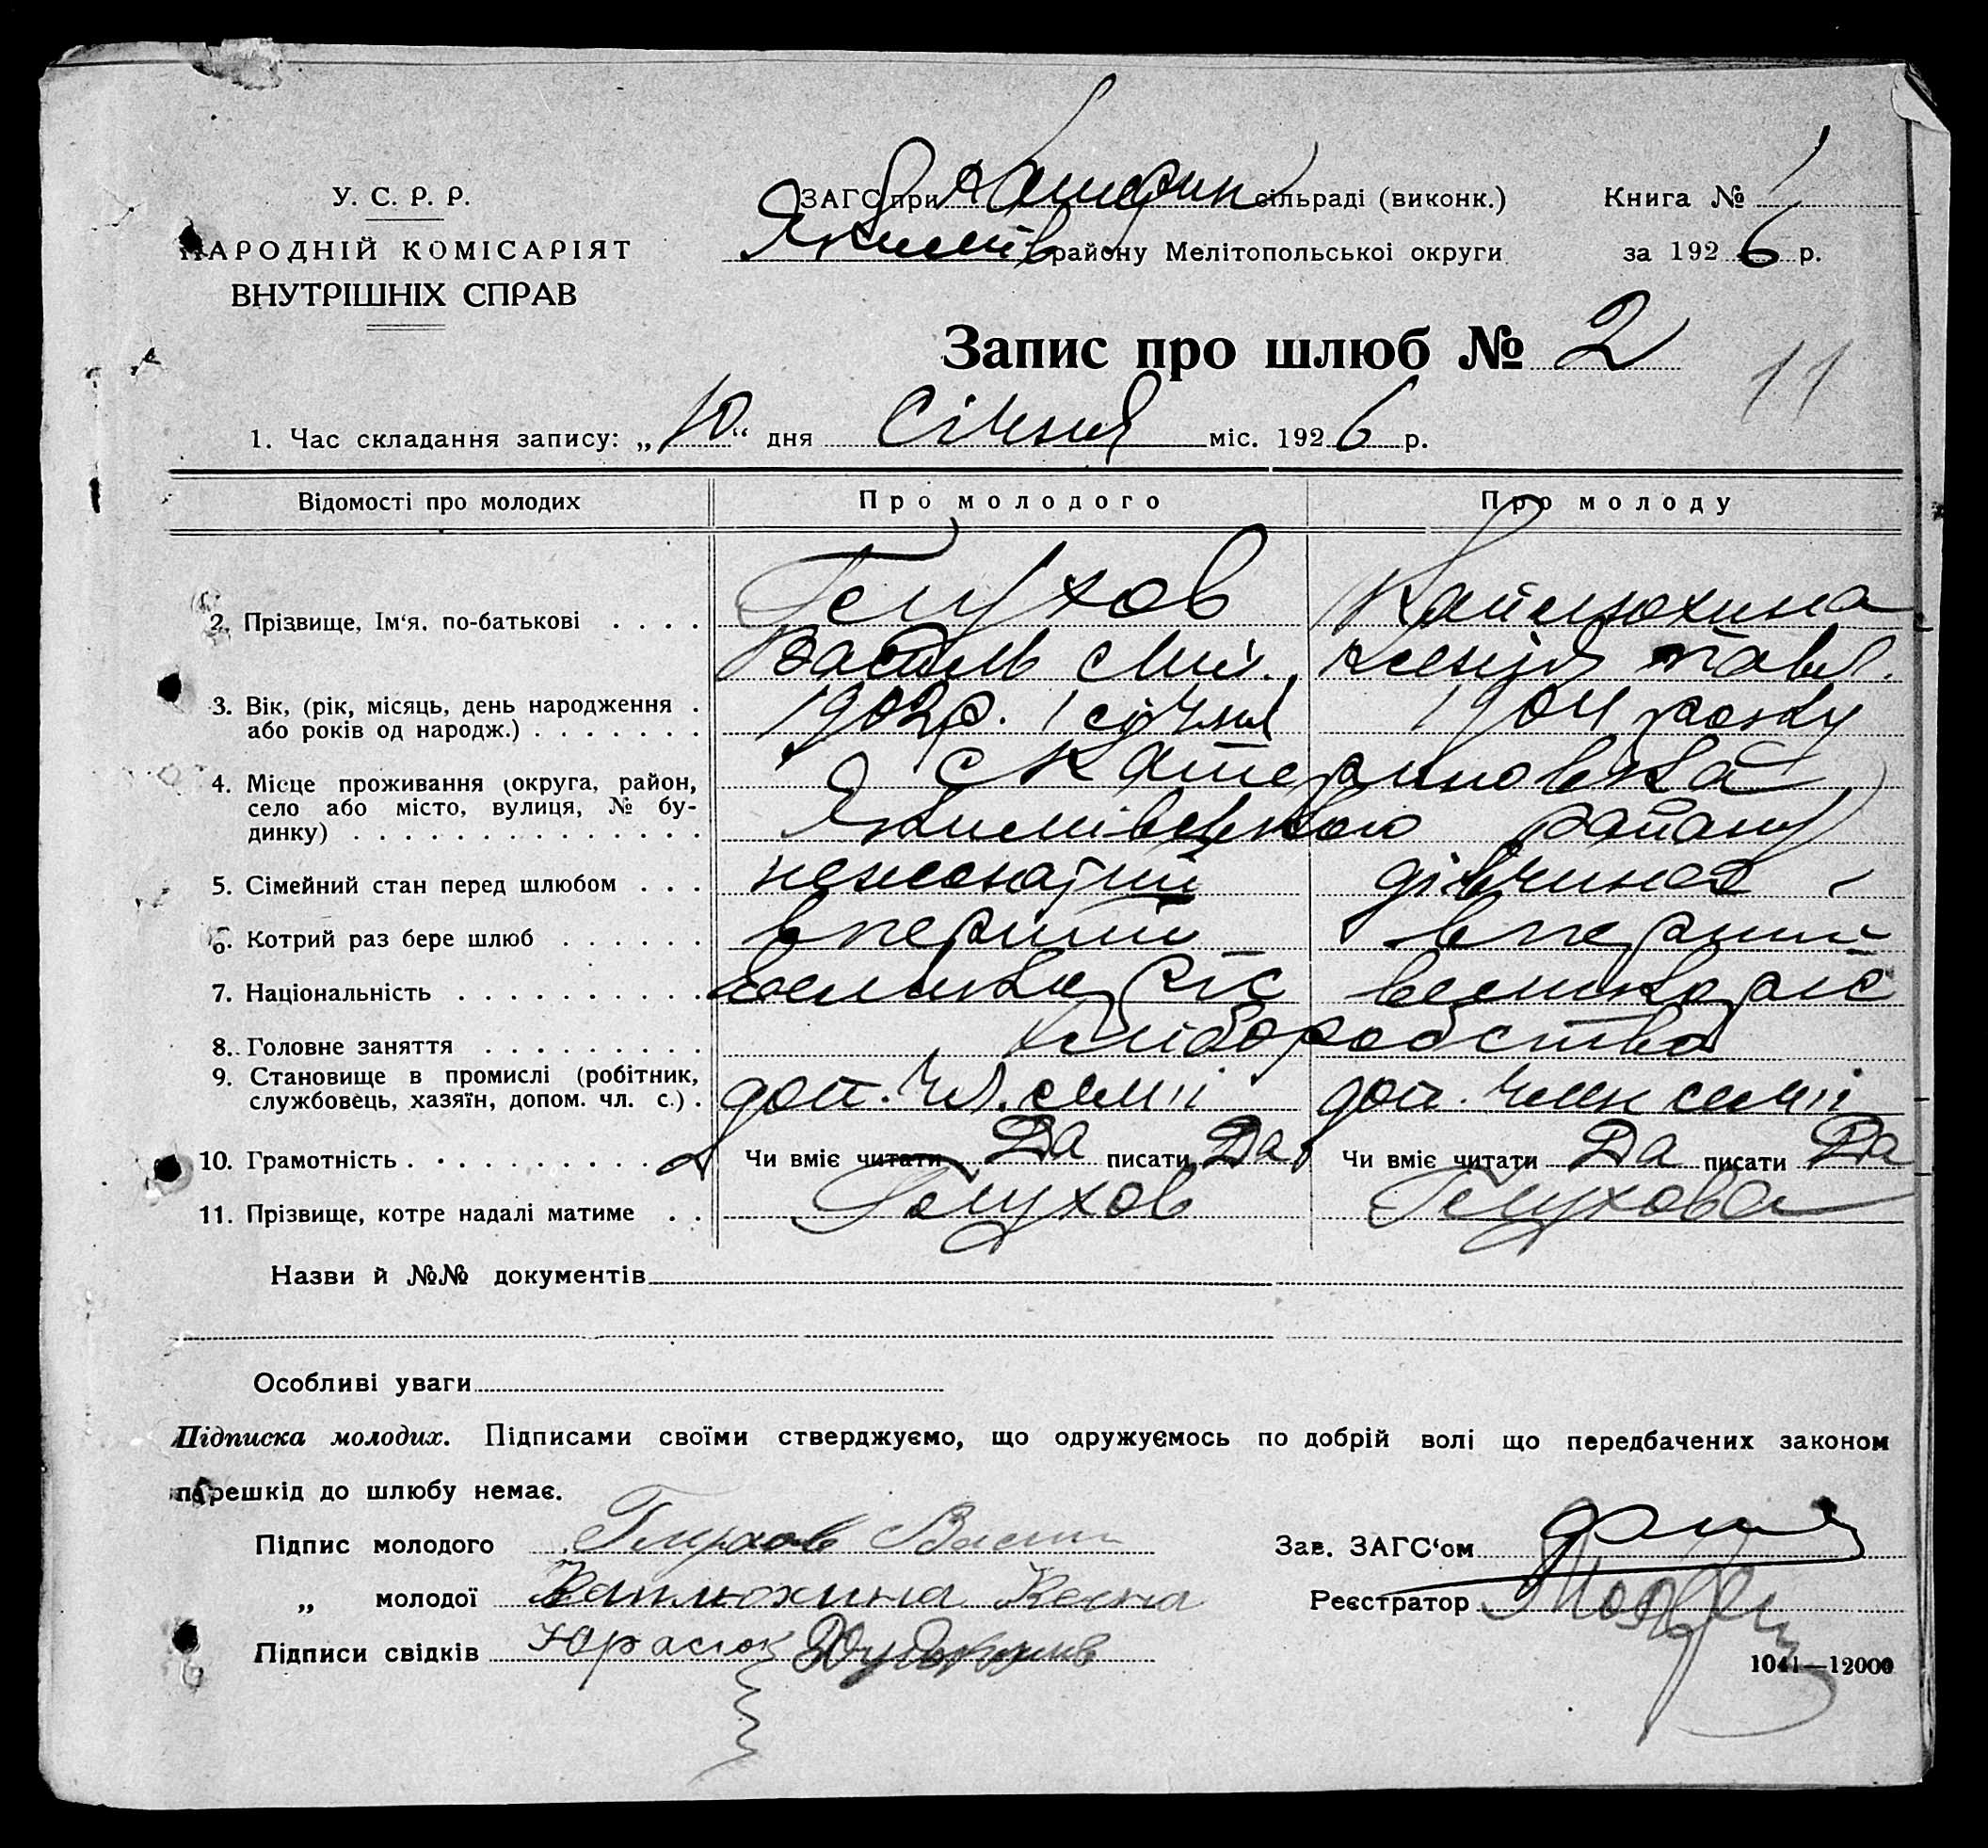 У. С. Р. Р.
НАРОДНІЙ КОМІСАРІЯТ
ВНУТРІШНІХ СПРАВ
ЗАГС при Катерин сільраді (виконк.)
Якимів району Мелітопольської округи
Книга № 1
за 1926 р.
Запис про шлюб № 2
11
1. Час складання запису: „10“ дня Січня міс. 1926 р.
Відомості про молодих Про молодого Про молоду
2. Прізвище, Ім‘я, по-батькові . . . . Глухов Кайлюхина
Василь Мих. Ксенія Павл.
3. Вік, (рік, місяць, день народження . 1902р. 1 січня 1904 року
або років од народж.) . . . . . . .
4. Місце проживання (округа, район, с Катериновка
село або місто, вулиця, № бу-
динку) . . . . . . . . . . . . . . Якимівського району
5. Сімейний стан перед шлюбом . . . нежонатий дівчина
6. Котрий раз бере шлюб . . . . . . вперший вперший
7. Національність . . . . . . . . . великорос великорос
8. Головне заняття . . . . . . . . . хліборобство
9. Становище в промислі (робітник, доп. чл. семіі доп. член семіі
службовець, хазяїн, допом. чл. с.) .
10. Грамотність . . . . . . . . . . Чи вміє читати Да писати Да Чи вміє читати Да писати Да
11. Прізвище, котре надалі матиме . . Глухов Глухова
Назви й №№ документів
Особливі уваги
Підписка молодих. Підписами своїми стверджуємо, що одружуємось по добрій волі що передбачених законом
перешкід до шлюбу немає.
Підпис молодого Глухов Васил
„ молодої Каплюхина Ксена
Підписи свідків Юрасюк
Зав. ЗАГС‘ом
Реєстратор
1041—12000